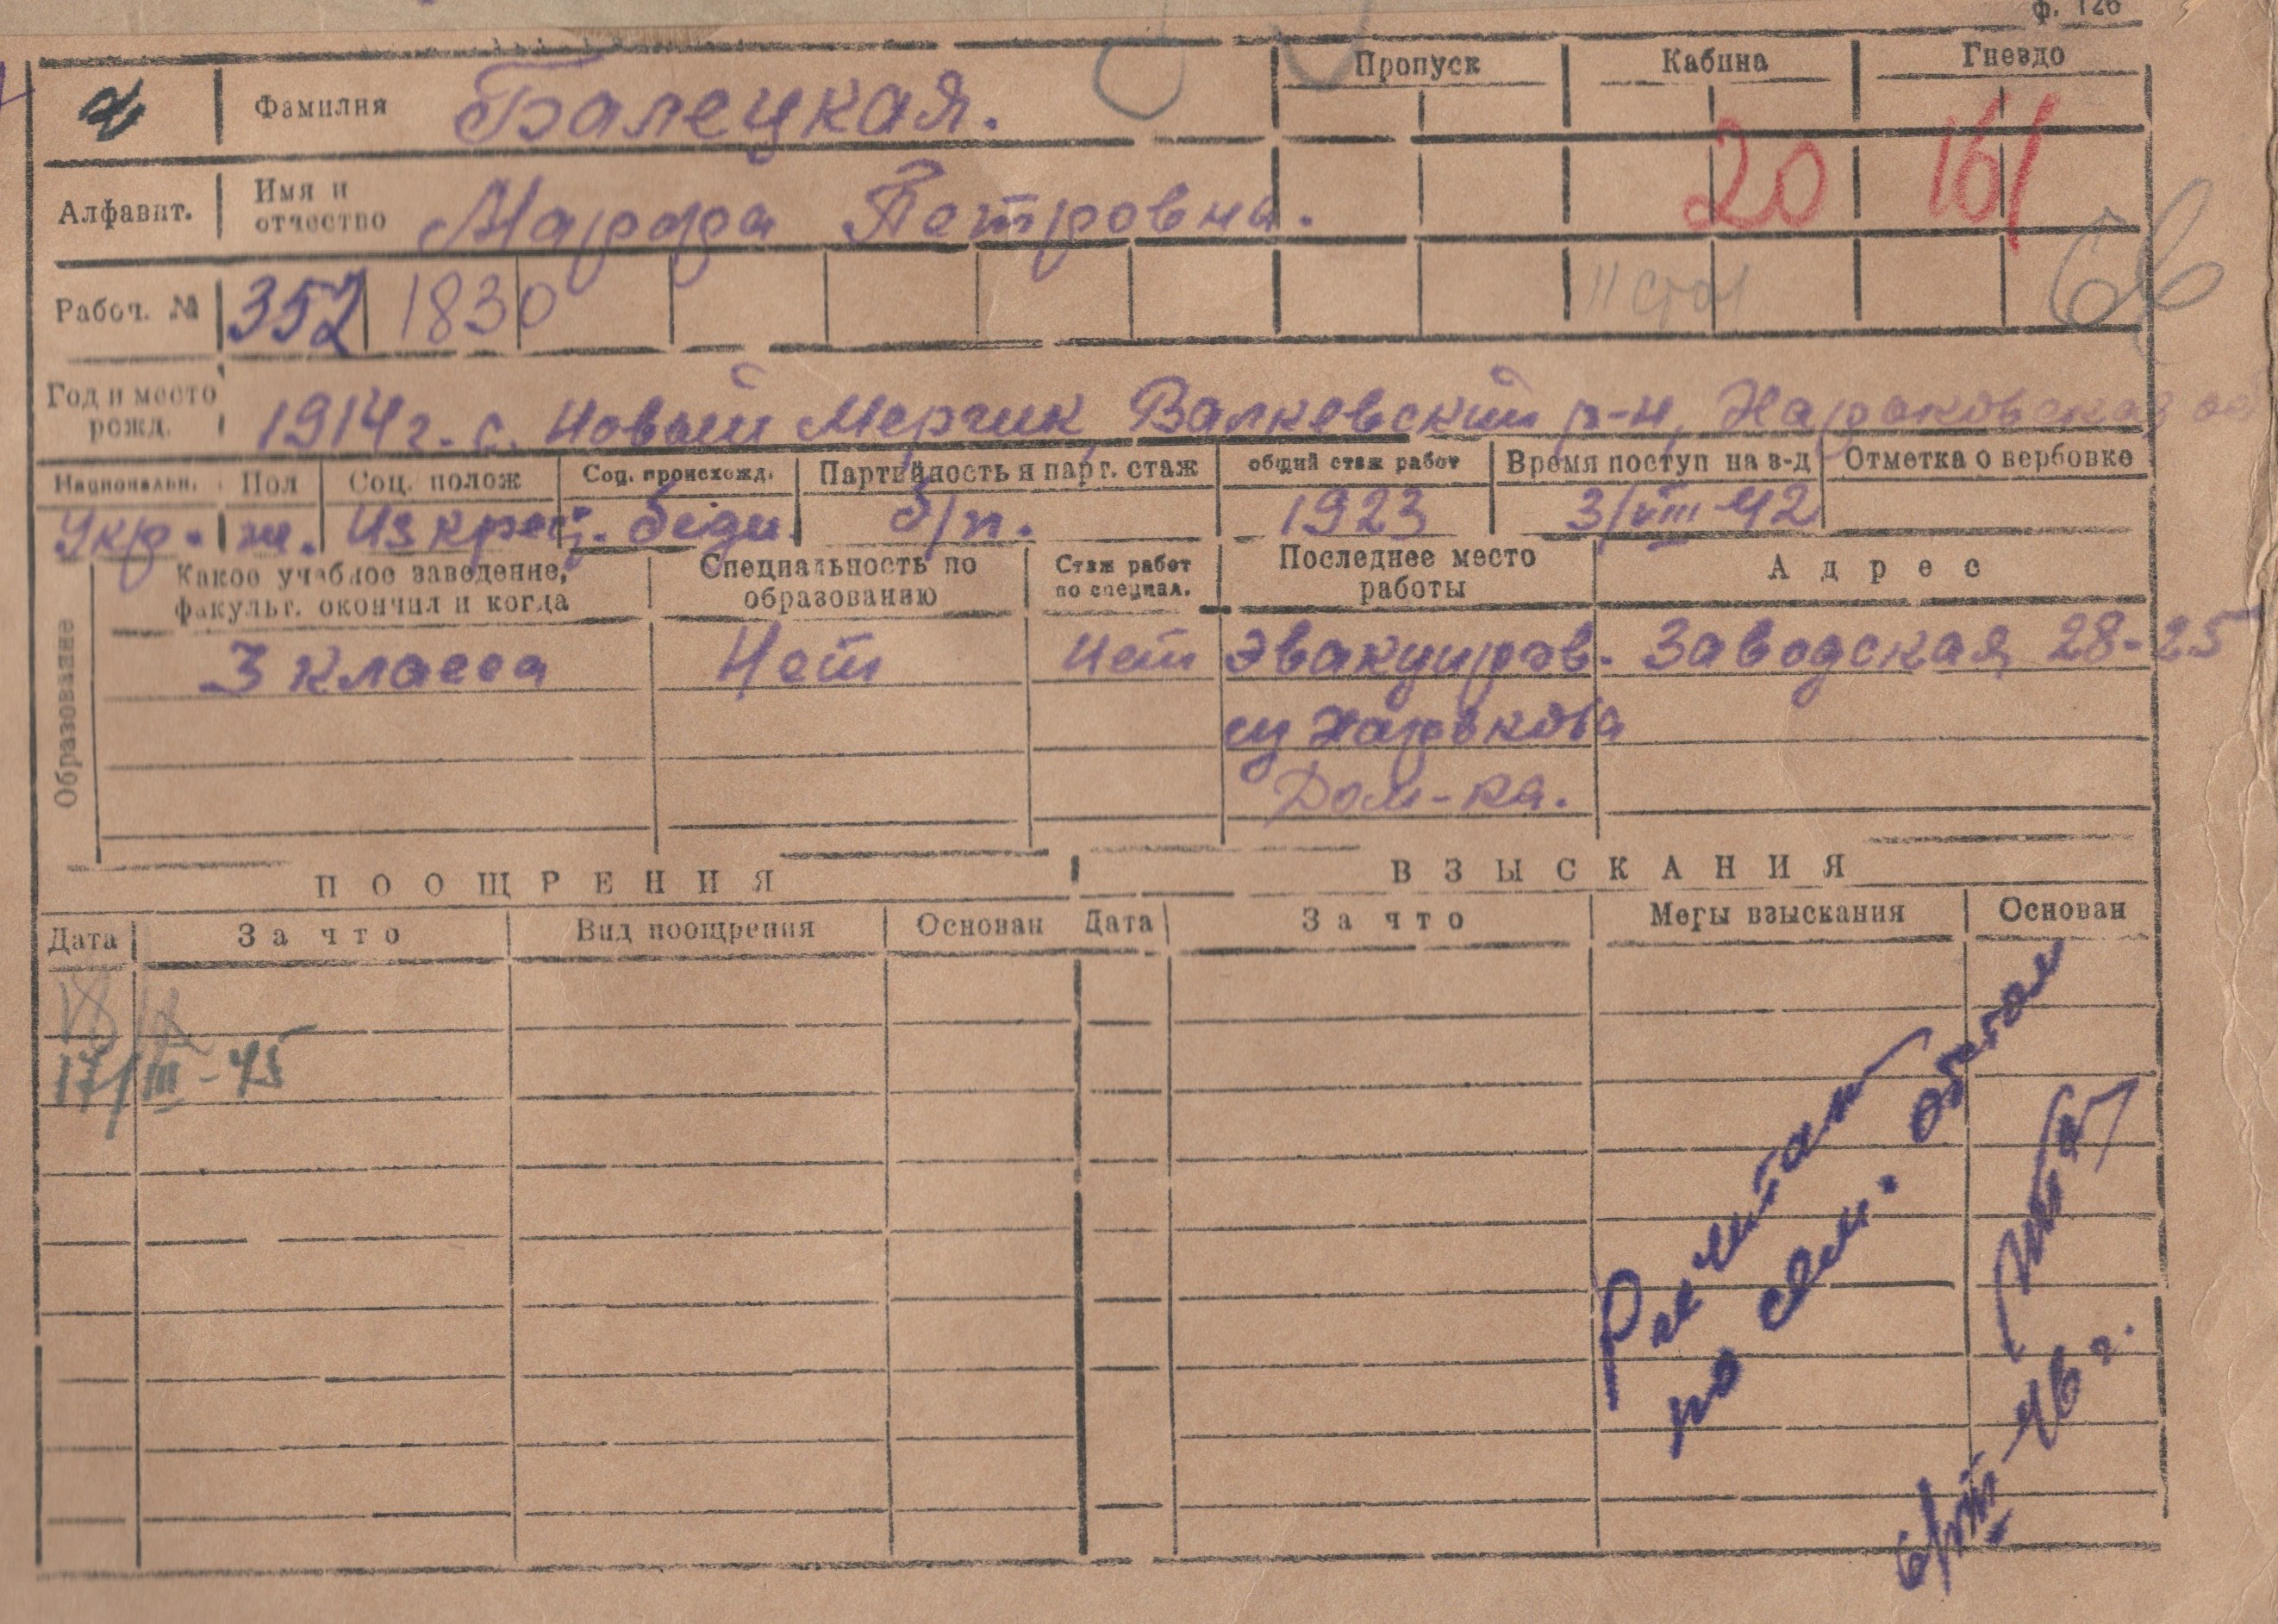 ф. 126
Фамилия Балецкая.
Пропуск Кабина Гнездо
20 161
Алфавит. Имя и отчество Марфа Петровна.
Рабоч. № 352 1830
11 стол
Год и место рожд. 1914 г. с. Новый Мерчик, Валковский р-н, Харьковская об
Национальн. Пол Соц. полож Соц. происхожд. Партийность и парт. стаж общий стаж работ Время поступ на з-д Отметка о вербовке
Укр. ж. Из крест. бедн. б/п. 1923 3/VIII-42
Образование
Какое учебное заведение, факульт. окончил и когда Специальность по образованию Стаж работ по специал. Последнее место работы Адрес
3 класса Нет Нет Эвакуиров. Заводская, 28-25
из Харькова
Дом-ка.
ПООЩРЕНИЯ ВЗЫСКАНИЯ
Дата За что Вид поощрения Основан Дата За что Меры взыскания Основан
17/III-45
по сем. обстоят
6/VIII-46 г.